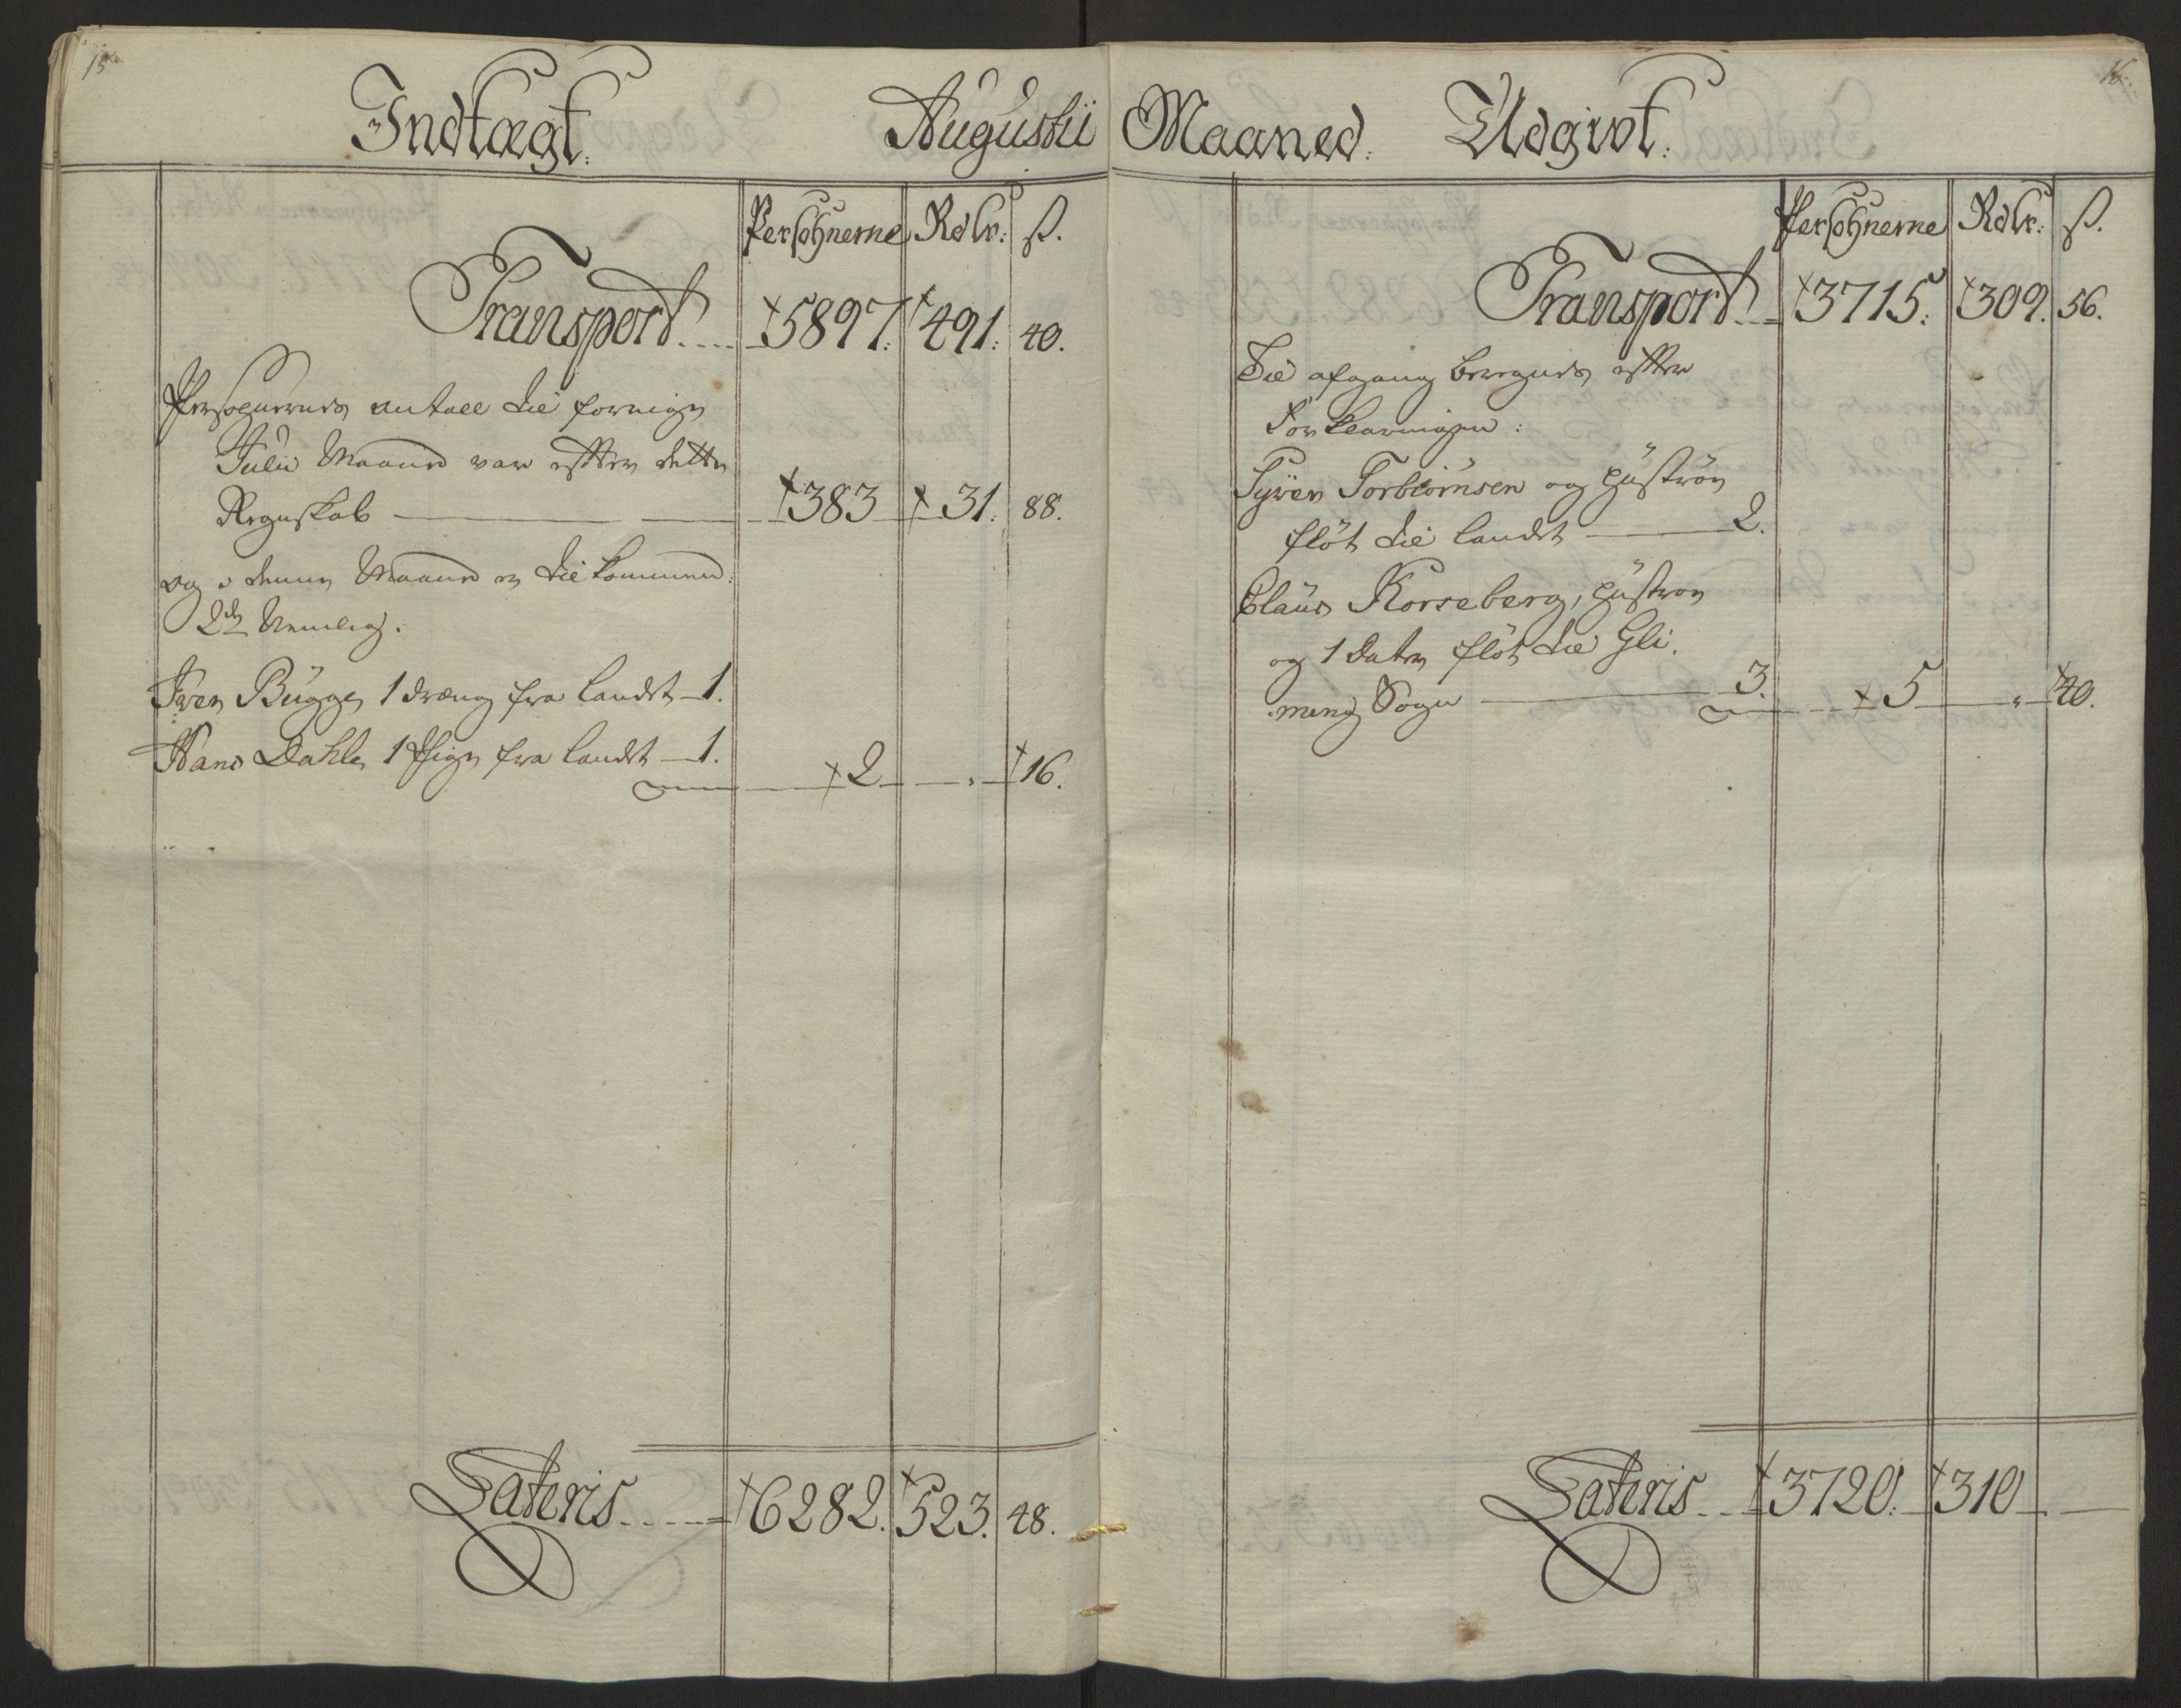 15
Indtægt. Augustii
Persohnerne Rdlr: ß.
Transport.... 5897. 491. 40.
Persohnernes antall die forrige
Julii Maaned var efter dette
Regnskab 383 31. 88.
og i denne Maaned er die kommen:
2de Nemlig.
Iver Bügge, 1 dræng fra landet 1.
Hans Dahle, 1 Pige fra landet 1.
2 " 16.
Lateris..... 6282. 523. 48.
16.
Maaned. Udgivt.
Persohnerne Rdlr. ß.
Transport... 3715. 309. 56.
Die afgang beregnes efter
Forklaringen:
Syver Torbiörnsen og Hüströe
flöt die landet 2.
Claüs Korseberg, Hüstroe
og 1 Dater flöt die Gli.
ming Sogn 3. 5 " 40.
Lateris... 3720. 310 —